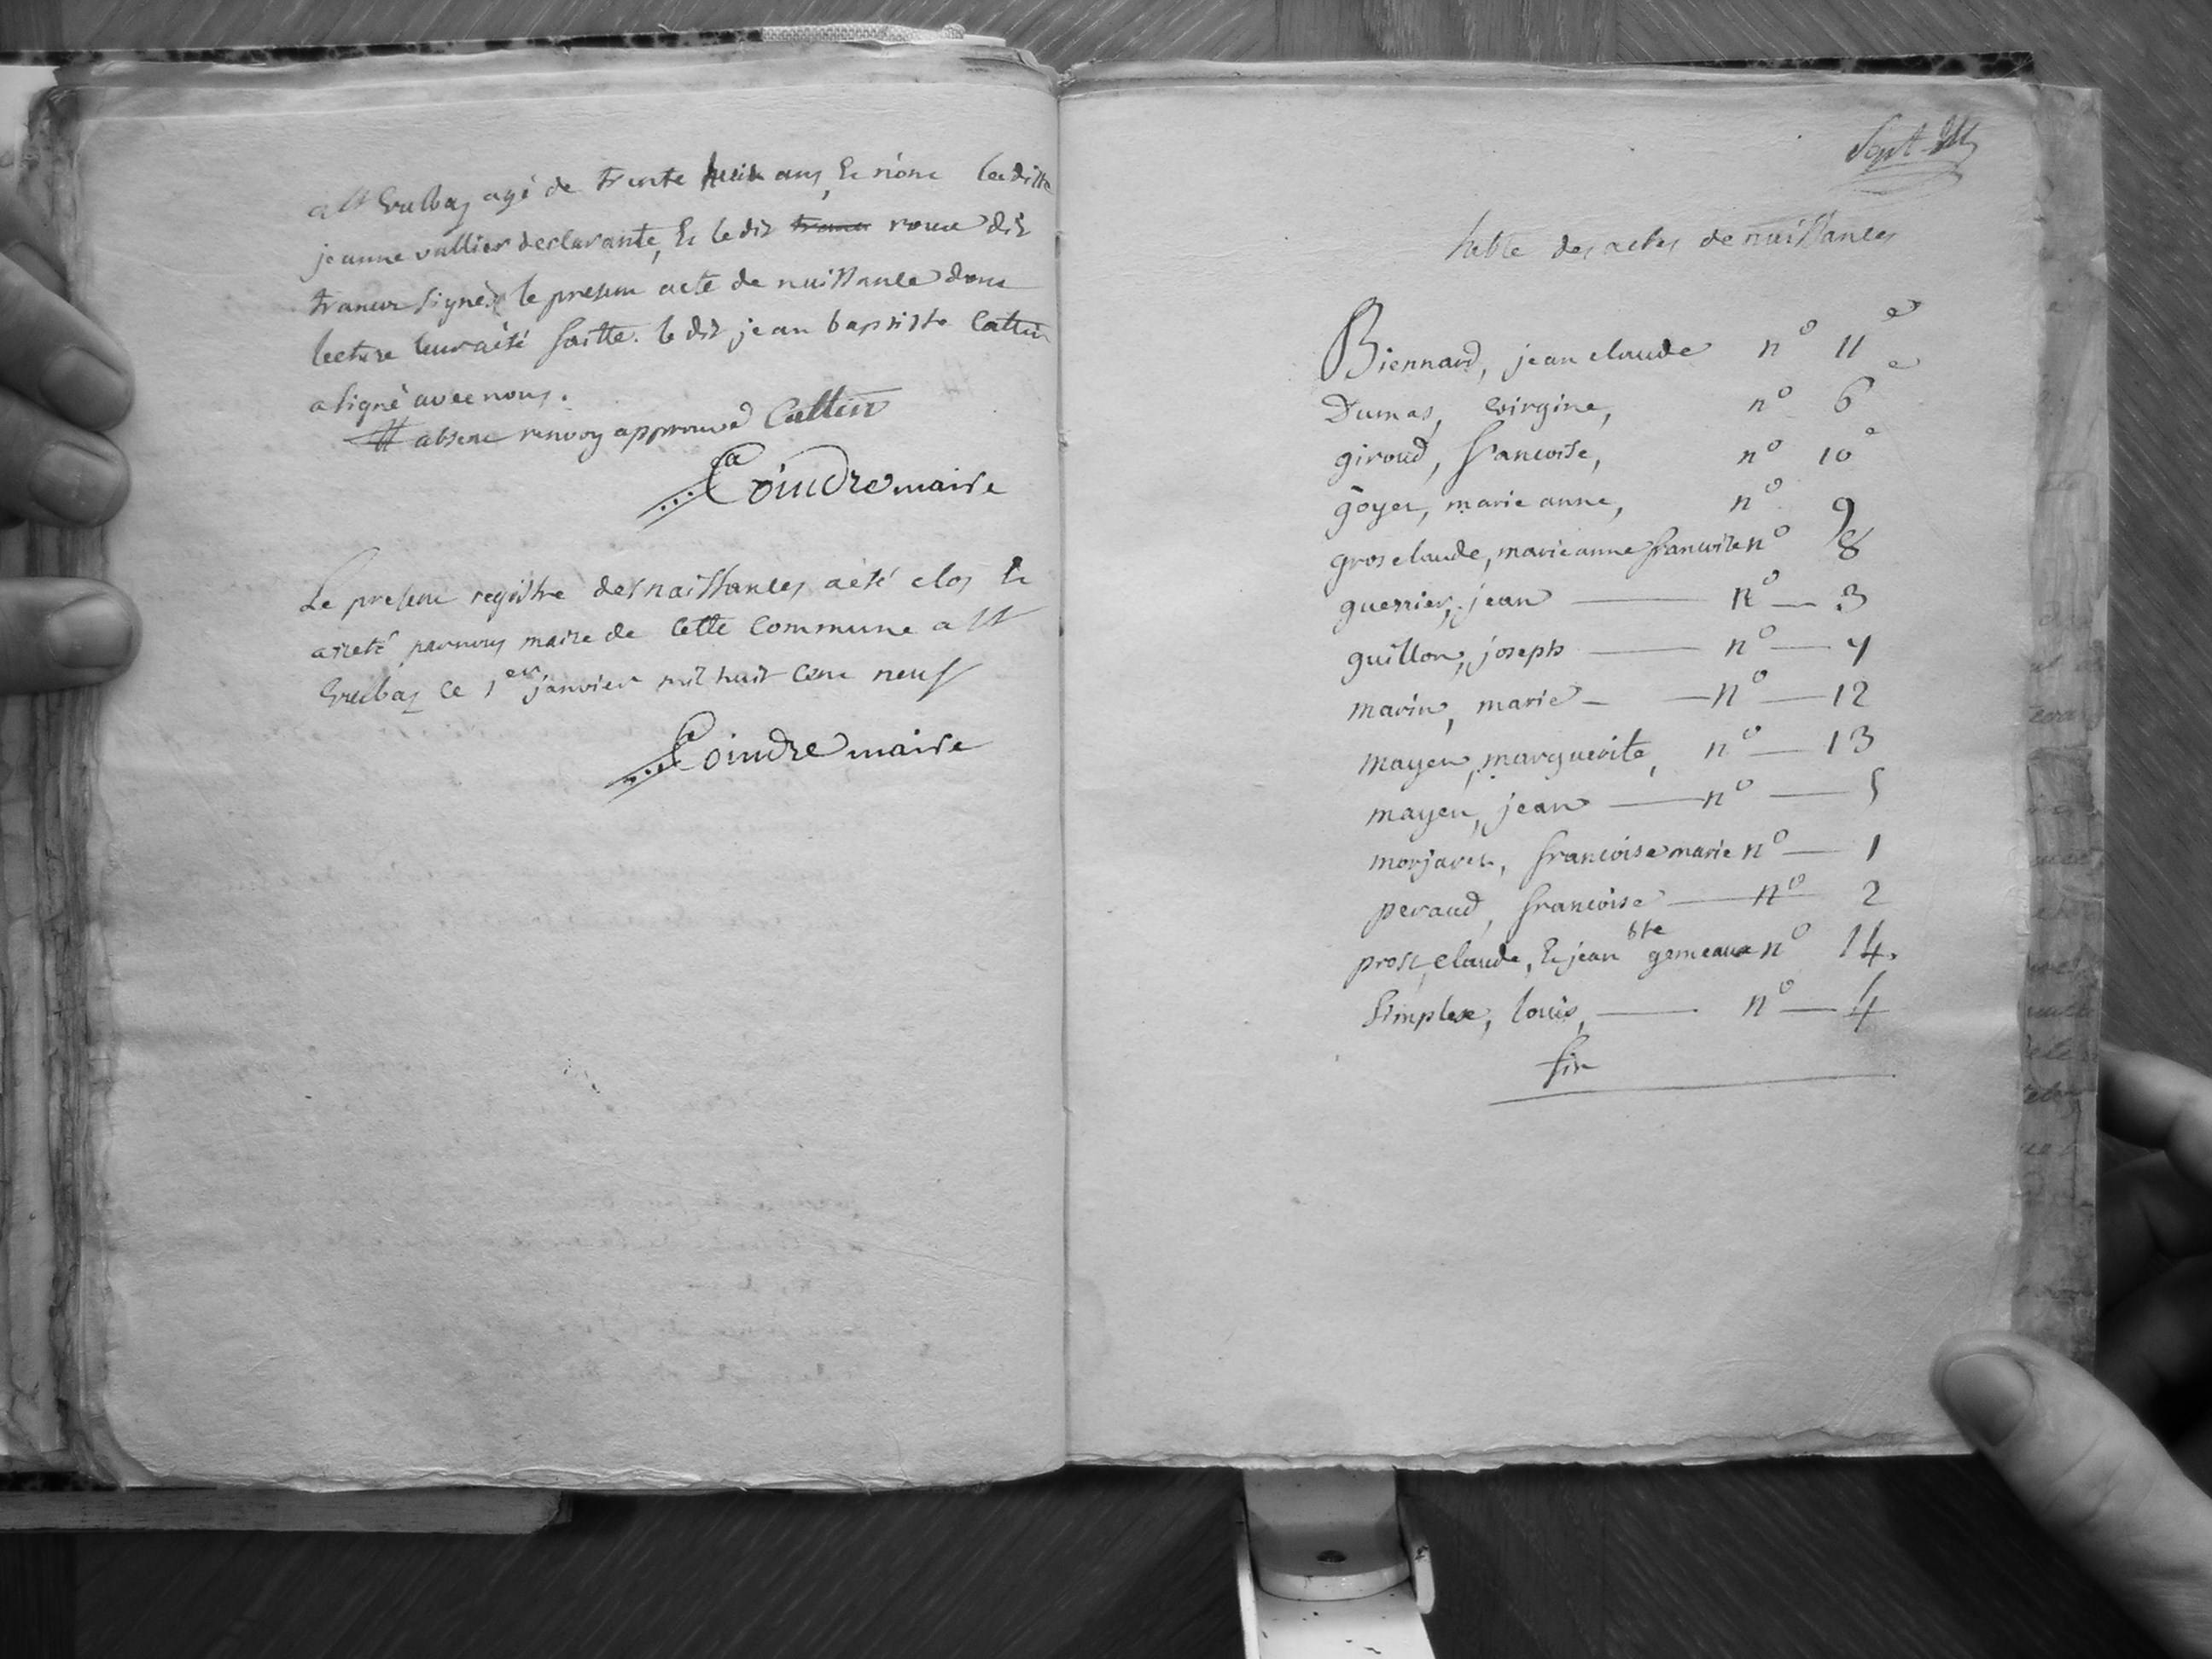 a St Trubas agé de trente huit ans, Et nont laditte
jeanne vullier declarante, Et le dit roux dit
francr signés le present acte de naissance dont
lecture leur a été faitte. le dit jean baptiste Cattin
a signé avec nous.
absent renvoy approuvé Cattin
Coindre maire
Le present registre des naissances a été clos Et
areté par nous maire de Cette Commune a St
Trubas Ce 1er janvier mil huit Cent neuf
Coindre maire
Sept
table des actes de naissances
Biennard, jean claude n° 11e
Dumas, virgine, n° 6e
giroud, francoise, n° 10e
goyet, marie anne, n° 9
grosclaude, marie anne francoise n° 8
guerrier, jean — n° — 3
guillon, joseph — n° — 7
marin, marie — n° — 12
mayen, marguerite, n° — 13
mayen, jean — n° — 5
morjaret, francoise marie n° — 1
peraud, francoise — n° 2
prost, claude, Et jean bte gemeaux n° 14.
Simplex, louis, — n° — 4
fin